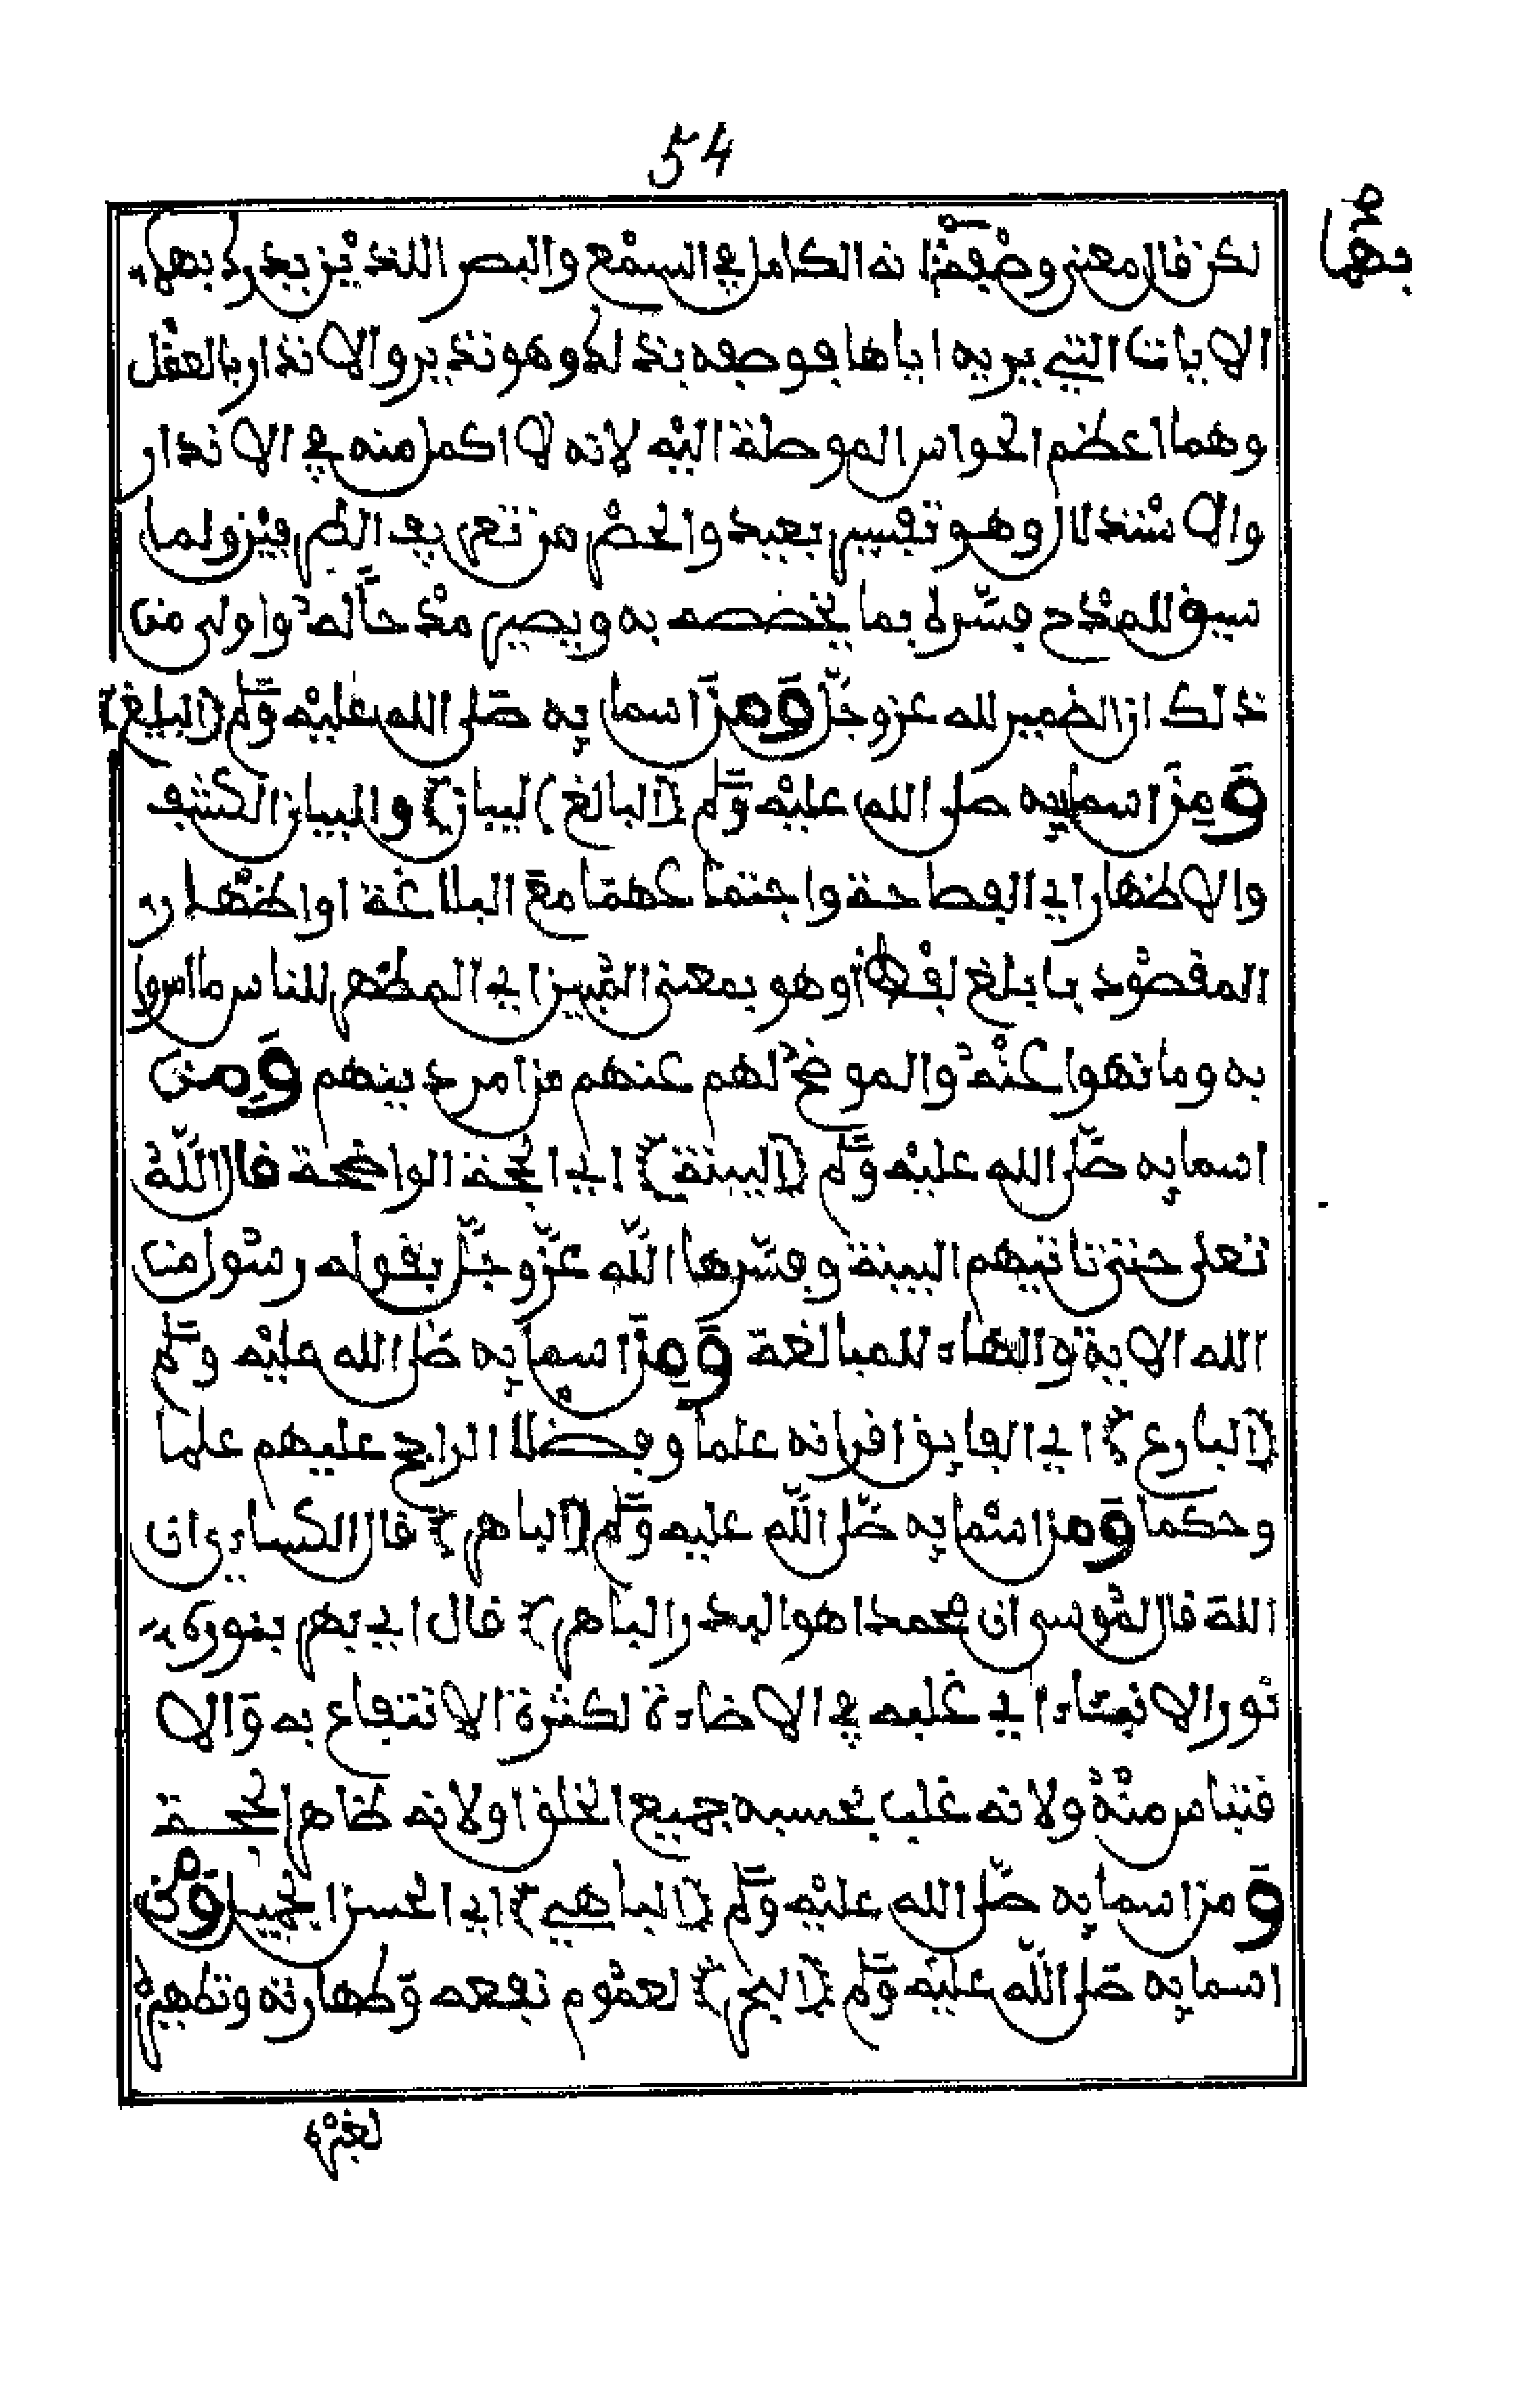 54
بهما
لكن قال معنى وصفه ثم انه الكامل في السمع والبصر اللذين يدرك بهما
الايات التي يريه اياها فوصفه بذلك وهو نذير والانذار بالعقل
وهما اعظم الحواس الموصلة اليه لانه لا اكمل منه في الانذار
والاستدلال وهو تفسير بعيد والحصر من تعريف الطرفين ولما
سيق للمدح فسره بما يخصصه به ويصير مدحا له واولى من
ذلك ان الضمير لله عز وجل ومن اسمايه صلى الله عليه وسلم (البليغ)
ومن اسمايه صلى الله عليه وسلم (البالغ) (البيان) والبيان الكشف
والاظهار اي الفصاحة واجتماعهما مع البلاغة او اظهار
المقصود بابلغ لفظ او هو بمعنى المبين اي المظهر للناس ما امروا
به وما نهوا عنه والموضح لهم عنهم من امر دينهم ومن
اسمايه صلى الله عليه وسلم (البينة) اي الحجة الواضحة قال الله
تعلى حتى تاتيهم البينة وفسرها الله عز وجل بقوله رسول من
الله الاية والهاء للمبالغة ومن اسمايه صلى الله عليه وسلم
(البارع) اي الفايق اقرانه علما وفضلا الراجح عليهم علما
وحكما ومن اسمايه صلى الله عليه وسلم (الباهر) قال الكساءي ان
الله قال لموسى ان محمدا هو البدر الباهر) قال اي بهر بنوره
نور الانبياء اي غلبه في الاضاءة لكثرة الانتفاع به والا
قتباس منه ولانه غلب بحسبه جميع الخلق او لانه ظاهر الحجة
ومن اسمايه صلى الله عليه وسلم (الباهي) اي الحسن الجميل ومن
اسمايه صلى الله عليه وسلم (البحر) لعموم نفعه وطهارته وتطهيره
لغيره